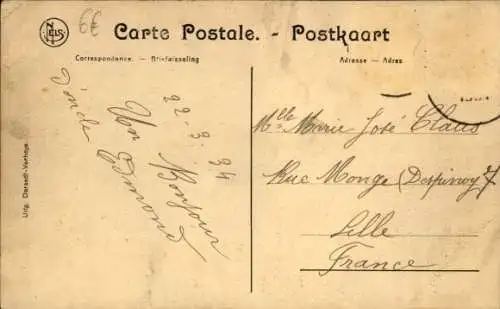 6€
NELS
Carte Postale. - Postkaart
Correspondance. — Briefwisseling
Adresse — Adres
22-3-34
Un Bonjour
d'oncle Edmond
Mlle Marie José Claus
Rue Monge
Lille
France
Uitg. Deraedt-Verhoye